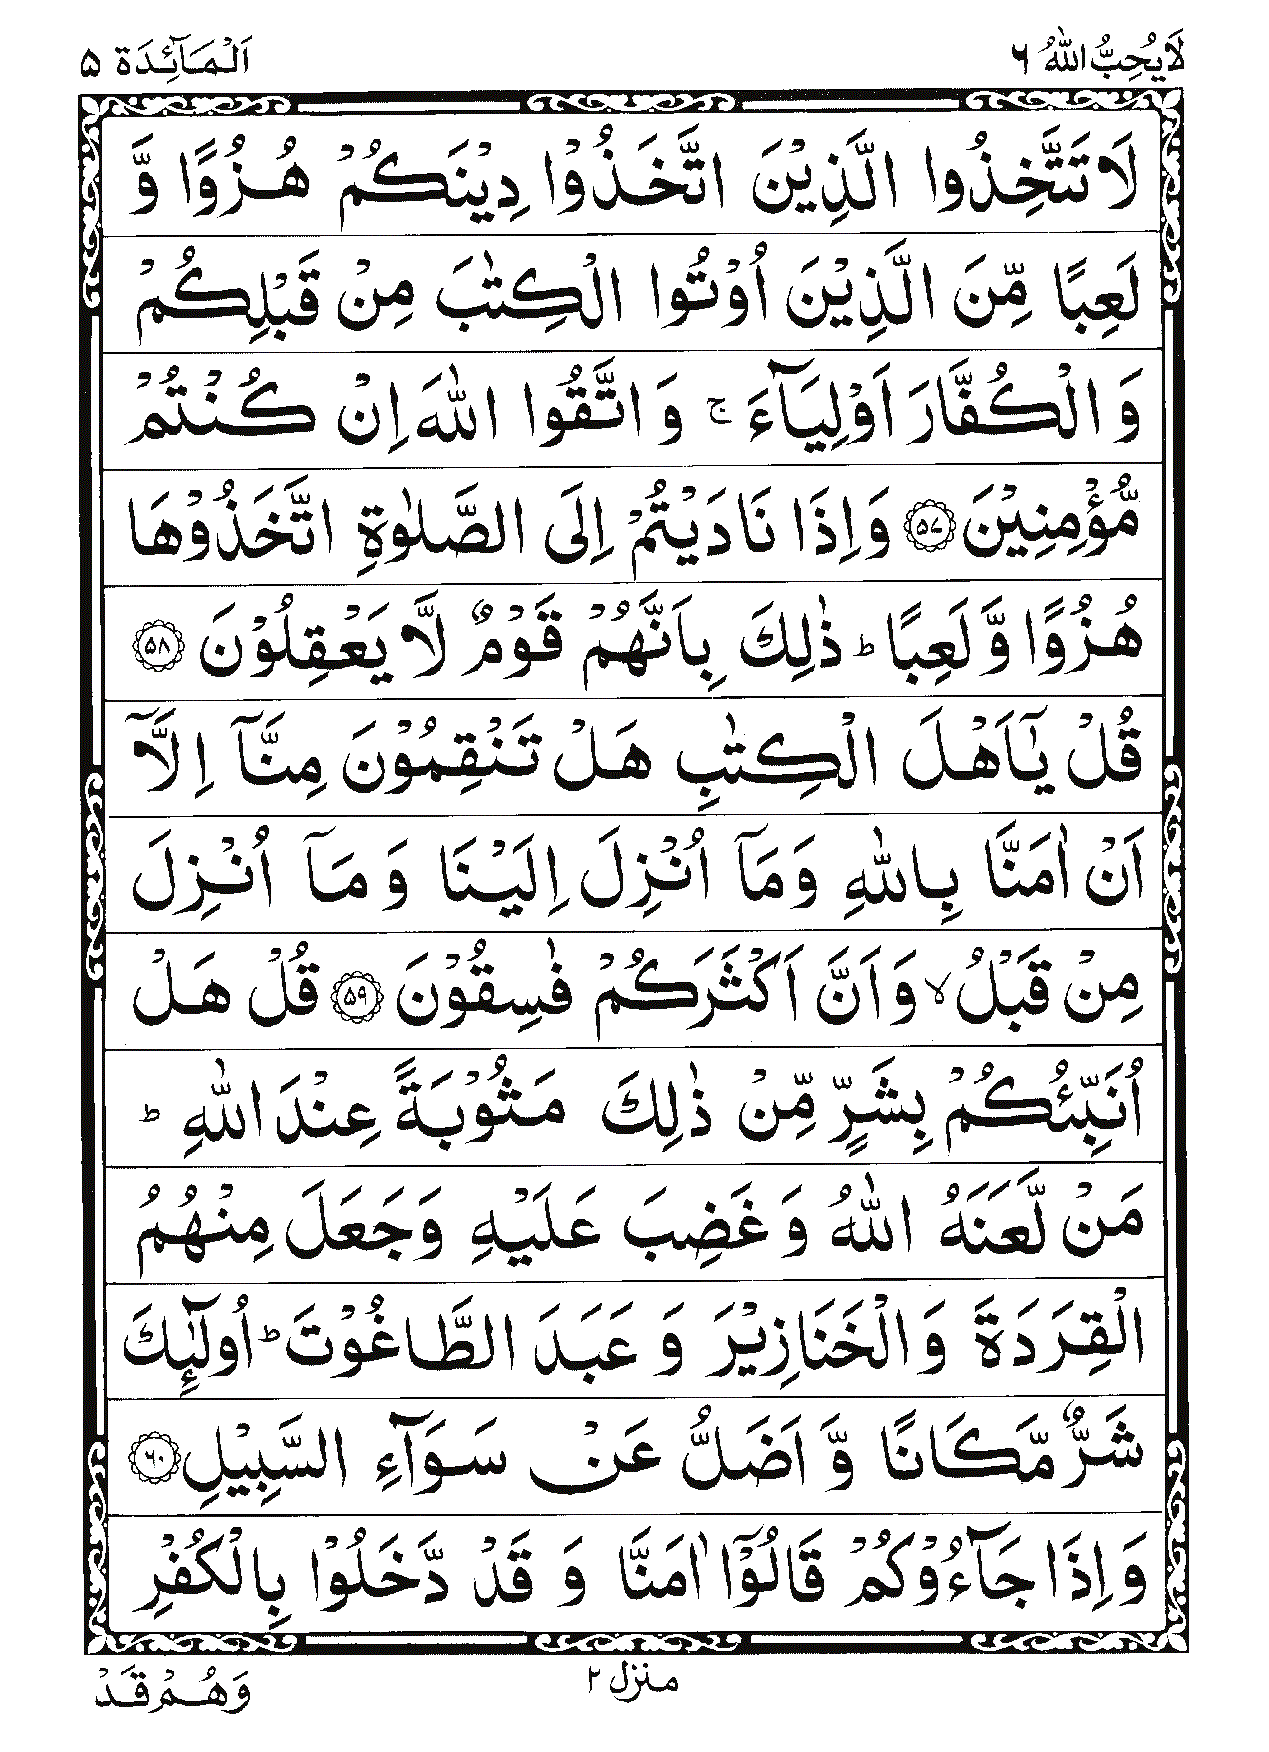 لَا يُحِبُّ اللّٰهُ ٦
اَلْمَآئِدَة ۵
لَا تَتَّخِذُوا الَّذِيْنَ اتَّخَذُوْا دِيْنَكُمْ هُزُوًا وَّ
لَعِبًا مِّنَ الَّذِيْنَ اُوْتُوا الْكِتٰبَ مِنْ قَبْلِكُمْ
وَالْكُفَّارَ اَوْلِيَآءَ ۚ وَاتَّقُوا اللّٰهَ اِنْ كُنْتُمْ
مُّؤْمِنِيْنَ ﴿۵۷﴾ وَاِذَا نَادَيْتُمْ اِلَى الصَّلٰوةِ اتَّخَذُوْهَا
هُزُوًا وَّلَعِبًا ؕ ذٰلِكَ بِاَنَّهُمْ قَوْمٌ لَّا يَعْقِلُوْنَ ﴿۵۸﴾
قُلْ يٰۤاَهْلَ الْكِتٰبِ هَلْ تَنْقِمُوْنَ مِنَّاۤ اِلَّاۤ
اَنْ اٰمَنَّا بِاللّٰهِ وَمَاۤ اُنْزِلَ اِلَيْنَا وَمَاۤ اُنْزِلَ
مِنْ قَبْلُ ۙ وَاَنَّ اَكْثَرَكُمْ فٰسِقُوْنَ ﴿۵۹﴾ قُلْ هَلْ
اُنَبِّئُكُمْ بِشَرٍّ مِّنْ ذٰلِكَ مَثُوْبَةً عِنْدَ اللّٰهِ ؕ
مَنْ لَّعَنَهُ اللّٰهُ وَغَضِبَ عَلَيْهِ وَجَعَلَ مِنْهُمُ
الْقِرَدَةَ وَالْخَنَازِيْرَ وَعَبَدَ الطَّاغُوْتَ ؕ اُولٰٓئِكَ
شَرٌّ مَّكَانًا وَّاَضَلُّ عَنْ سَوَآءِ السَّبِيْلِ ﴿۶۰﴾
وَاِذَا جَآءُوْكُمْ قَالُوْۤا اٰمَنَّا وَقَدْ دَّخَلُوْا بِالْكُفْرِ
منزل ۲
وَهُمْ قَدْ